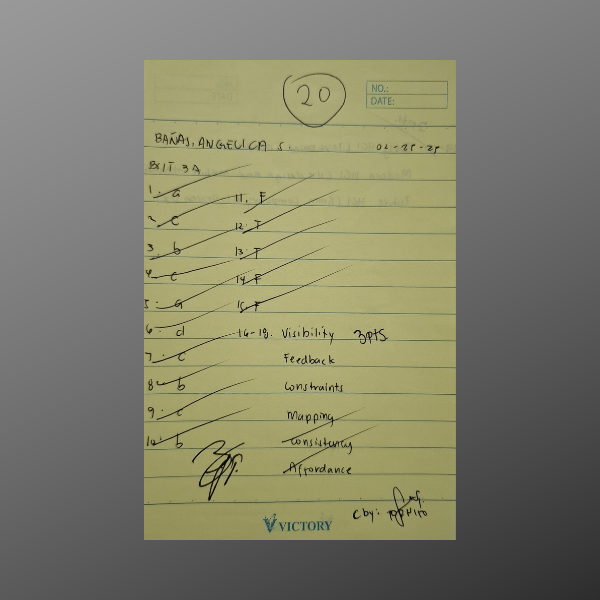 20
NO.:
DATE:
BAÑAS, ANGELICA S
BSIT 3A
1. a
2. c
3. b
4. c
5. a
6. d
7. c
8. b
9. c
10. b
11. F
12. T
13. T
14. F
15. F
16-18. Visibility 3pts
Feedback
Constraints
Mapping
Consistency
Affordance
VICTORY
Cby: